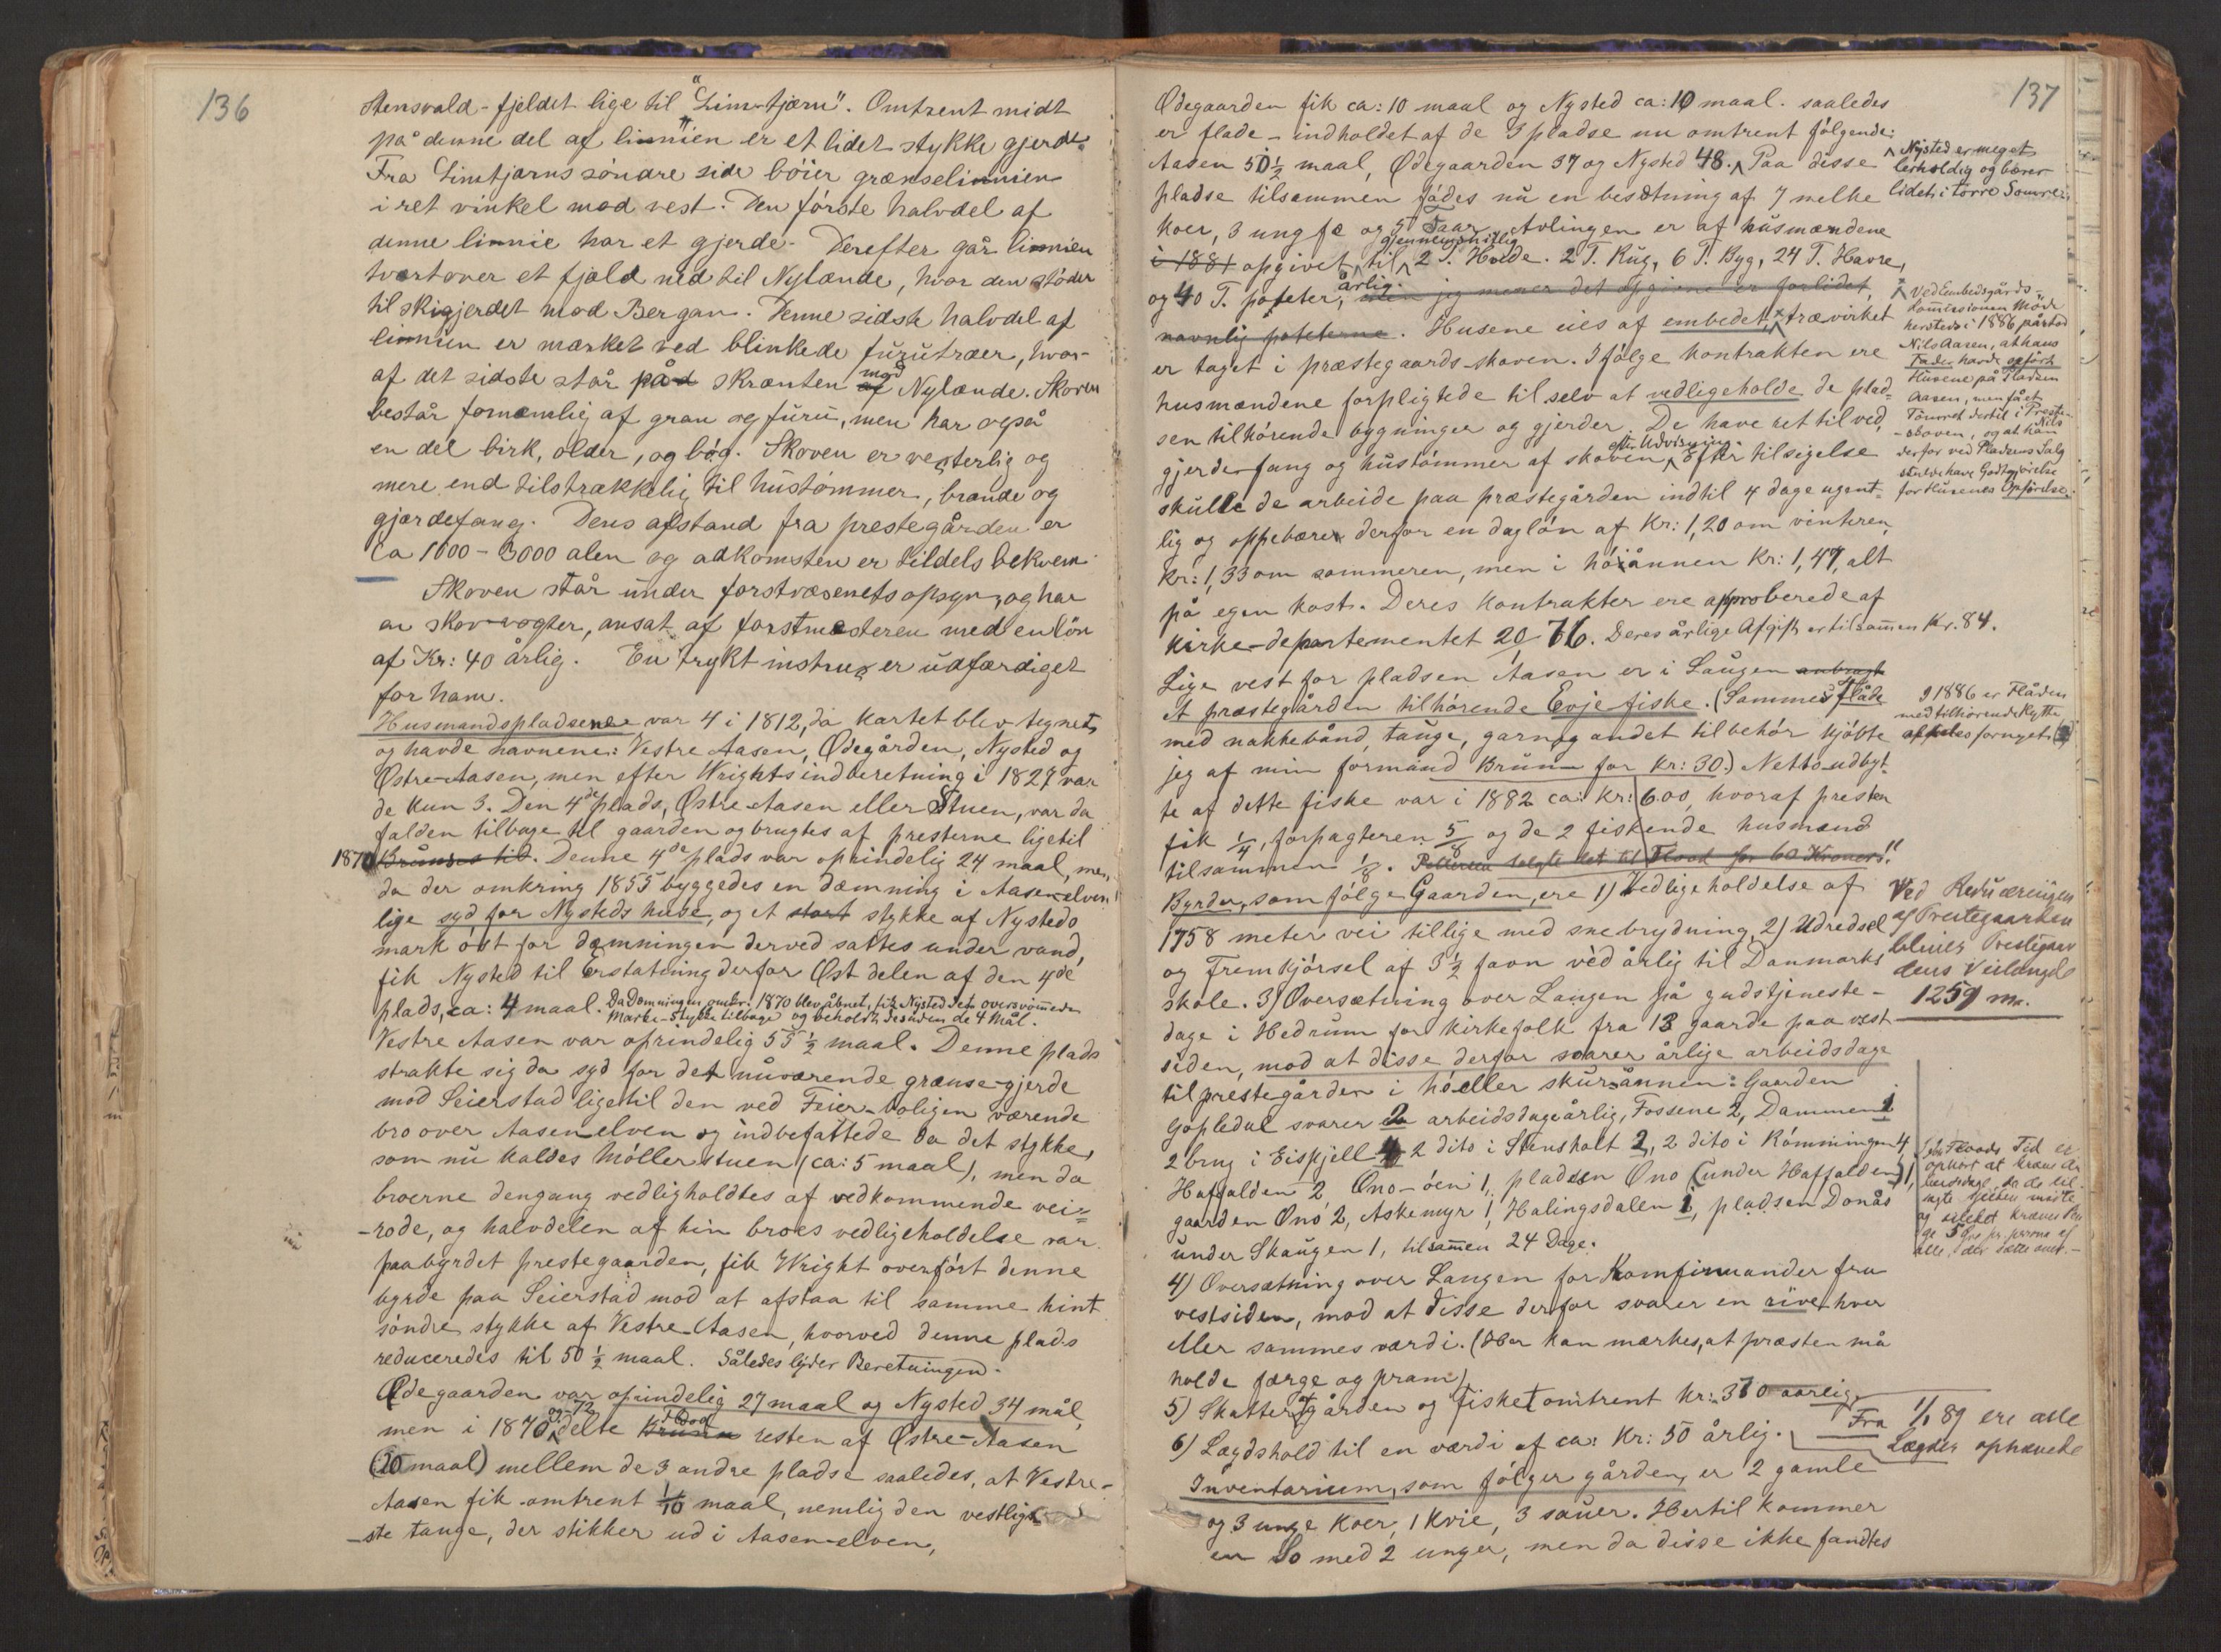 136
Stensvald-fjeldet lige til "Lim-tjærn". Omtrent midt
på denne del af linnien er et lidet stykke gjerde.
Fra Limtjærns søndre side bøier grænselinnien
i ret vinkel mod vest. Den første halvdel af
denne linnie har et gjerde. Derefter går linnien
tvertover et fjeld ned til Nylænde, hvor den støder
til skigjerdet mod Bergan. Denne sidste halvdel af
linnien er mærket ved blinkede furutræer, hvor-
af det sidste står på skrænten af mod Nylænde. Skoven
består fornemlig af gran og furu, men har også
en del birk, older, og bøg. Skoven er vexterlig og
mere end tilstrækkelig til hustømmer, brænde og
gjærdefang. Dens afstand fra prestegården er
ca 1000-3000 alen og adkomsten er tildels bekvem.
Skoven står under forstvæsenets opsyn, og har
en skov-vogter, ansat af forstmesteren med en løn
af Kr: 40 årlig. En trykt instrux er udfærdiget
for ham.
Husmandspladsene var 4 i 1812, da kartet blev tegnet,
og havde navnene: Vestre Aasen, Ødegården, Nysted og
Østre-Aasen, men efter Wrights indberetning i 1827 var
de kun 3. Den 4de plads, Østre Aasen eller Stuen, var da
falden tilbage til gaarden og brugtes af presterne ligetil
1870 Bruuns tid. Denne 4de plads var oprindelig 24 maal, men
da der omkring 1855 byggedes en dæmning i Aasen-elven
lige syd for Nysteds huse, og et stort stykke af Nysteds
mark øst for dæmningen derved sattes under vand,
fik Nysted til Erstatning derfor Øst delen af den 4de
plads, ca: 4 maal. Da Dæmningen omkr. 1870 blev åbnet, fik Nysted den oversvømmede
Marke-stykke tilbage og beholdt desuden de 4 Mål.
Vestre Aasen var oprindelig 55 ½ maal. Denne plads
strakte sig da syd for det nuværende grænse-gjerde
mod Seierstad ligetil den ved Feier-boligen værende
bro over Aasen-elven og indbefattede da det stykke,
som nu kaldes Møllerstuen (ca: 5 maal), men da
broerne dengang vedligholdtes af vedkommende vei-
-rode, og halvdelen af hin broes vedligeholdelse var
paabyrdet prestegaarden, fik Wright overført denne
byrde paa Seierstad mod at afstaa til samme hint
søndre stykke af Vestre-Aasen, hvorved denne plads
reduceredes til 50 ½ maal. Således lyder Beretningen.
Ødegaarden var oprindelig 27 maal og Nysted 34 mål,
men i 1870 og -72 delte Bruun Flood resten af Østre-Aasen
(20 maal) mellem de 3 andre pladse saaledes, at Vestre-
Aasen fik omtrent 1/10 maal, nemlig den vestlig-
-ste tange, der stikker ud i Aasen-elven,
137
Ødegaarden fik ca: 10 maal og Nysted ca: 10 maal. saaledes
er flade-indholdet af de 3 pladse nu omtrent følgende:
Aasen 50 ½ maal, Ødegaarden 37 og Nysted 48. Paa disse
Nysted er meget
lerholdig og bærer
lidet i tørre Somre.
pladse tilsammen fødes nu en besætning af 7 melke
koer, 3 ungfæ og 5 Faar. Avlingen er af husmændene
i 1881 opgivet gjennemsnitlig til 2 T. Hvede. 2 T. Rug, 6 T. Byg, 24 T. Havre,
og 40 T. poteter, årlig. men jeg mener det opgivne er forlidet,
navnlig poteterne. Husene eies af embedet, trævirket
er taget i præstegaards-skoven. Ifølge kontrakten ere
husmændene forpligtede til selv at vedligeholde de plad-
sen tilhørende bygninger og gjerder. De have ret til ved,
gjerdefang og hustømmer af skoven, efter Udvisning. Efter tilsigelse
skulle de arbeide paa præstegården indtil 4 dage ugent-
lig og oppebærer derfor en dagløn af Kr: 1,20 om vinteren,
Kr: 1,33 om sommeren, men i høiånnen Kr: 1,47, alt
på egen kost. Deres kontrakter ere approberede af
Kirke-departementet 20/ 76. Deres årlige Afgift er tilsammen Kr. 84.
Ved Embedsgårds-
kommissionens Møde
hersteds i 1886 påstod
Nils Aasen, at hans
Fader havde opført
Husene på Pladsen
Aasen, men fået
Tømret dertil i Preste-
-skoven, og at han Nils
derfor ved Pladsens Salg
skulde have Godtgjørelse
for Husenes Opførelse.
Lige vest for pladsen Aasen er i Laugen anbragt
et præstegården tilhørende Evje fiske. (Sammes flåde
med nakkebånd, tauge, garn og andet tilbehør kjøbte
jeg af min formand Bruun for kr: 30.) Netto-udbyt-
te af dette fiske var i 1882 ca: kr: 600, hvoraf presten
fik 1/4, forpagteren 5/8 og de 2 fiskende husmænd
tilsammen 1/8.
I 1886 er Flåden
med tilhørende Hytte
fornyet
Byrder, som følge Gaarden, ere 1) Vedligeholdelse af
1758 meter vei tillige med snebrydning, 2) Udredsel
og Fremkjørsel af 3 ½ favn ved årlig til Danmarks
skole. 3) Oversætning over Laugen på gudstjeneste-
dage i Hedrum for kirkefolk fra 13 gaarde paa vest
siden, mod at disse derfor svarer årlige arbeidsdage
til prestegården i hø eller skurånnen: Gaarden
Gopledal svarer 2 arbeidsdage årlig, Fossene 2, Dammen 1
2 brug i Eispjell 4, 2 dito i Stensholt 2, 2 dito i Rømmingen 4
Haffalden 2, Øno-øen 1, pladsen Øno (under Haffalden) 1,
gaarden Onø 2, Askemyr 1, Halingsdalen 1, pladsen Donås
under Skaugen 1, tilsammen 24 Dage.
Ved Reduceringen
af Prestegaarden
bliver Prestegaar
dens Veilængde
1259 m.
4) Oversætning over Laugen for Konfirmander fra
vestsiden, mod at disse derfor svarer en rive hver
eller sammes værdi. (Her kan mærkes, at præsten må
holde færge og pram)
5) Skatter af gården og fisket omtrent kr: 370 aarlig.
6) Lægdshold til en værdi af ca: Kr: 50 årlig.
Fra 1/1 89 ere alle
Lægder ophævede
Inventarium, som følger gården, er 2 gamle
og 3 unge koer, 1 kvie, 3 sauer. Hertil kommer
en So med 2 unger, men da disse ikke fandtes